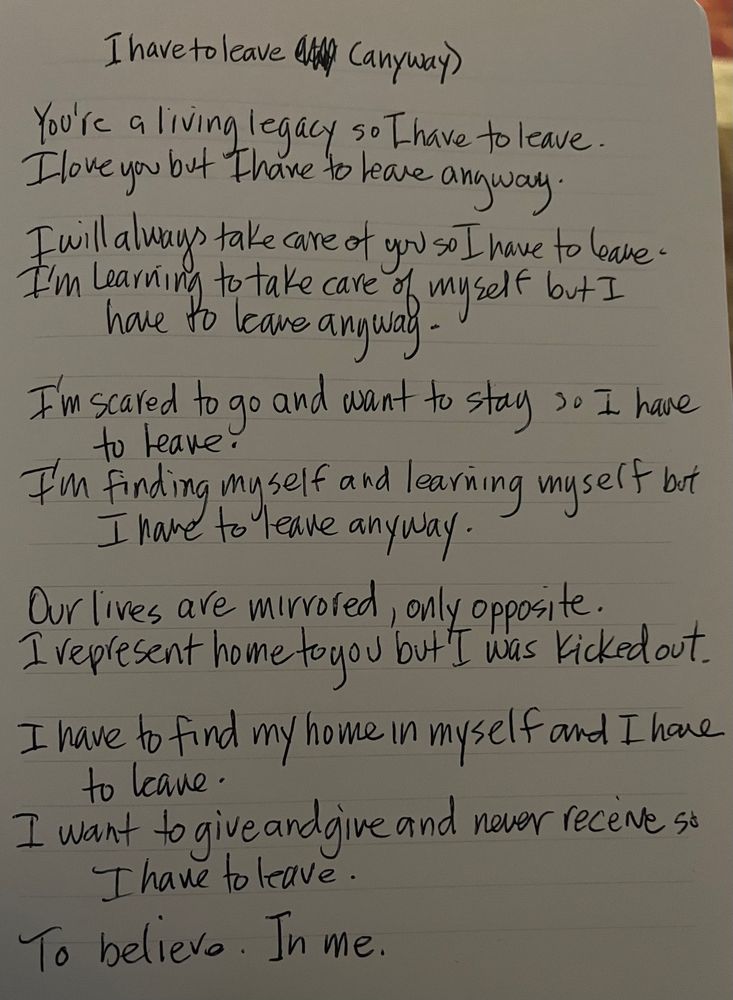 I have to leave (anyway)
You're a living legacy so I have to leave.
I love you but I have to leave anyway.
I will always take care of you so I have to leave.
I'm learning to take care of myself but I
have to leave anyway.
I'm scared to go and want to stay so I have
to leave.
I'm finding myself and learning myself but
I have to leave anyway.
Our lives are mirrored, only opposite.
I represent home to you but I was kicked out.
I have to find my home in myself and I have
to leave.
I want to give and give and never receive so
I have to leave.
To believe. In me.